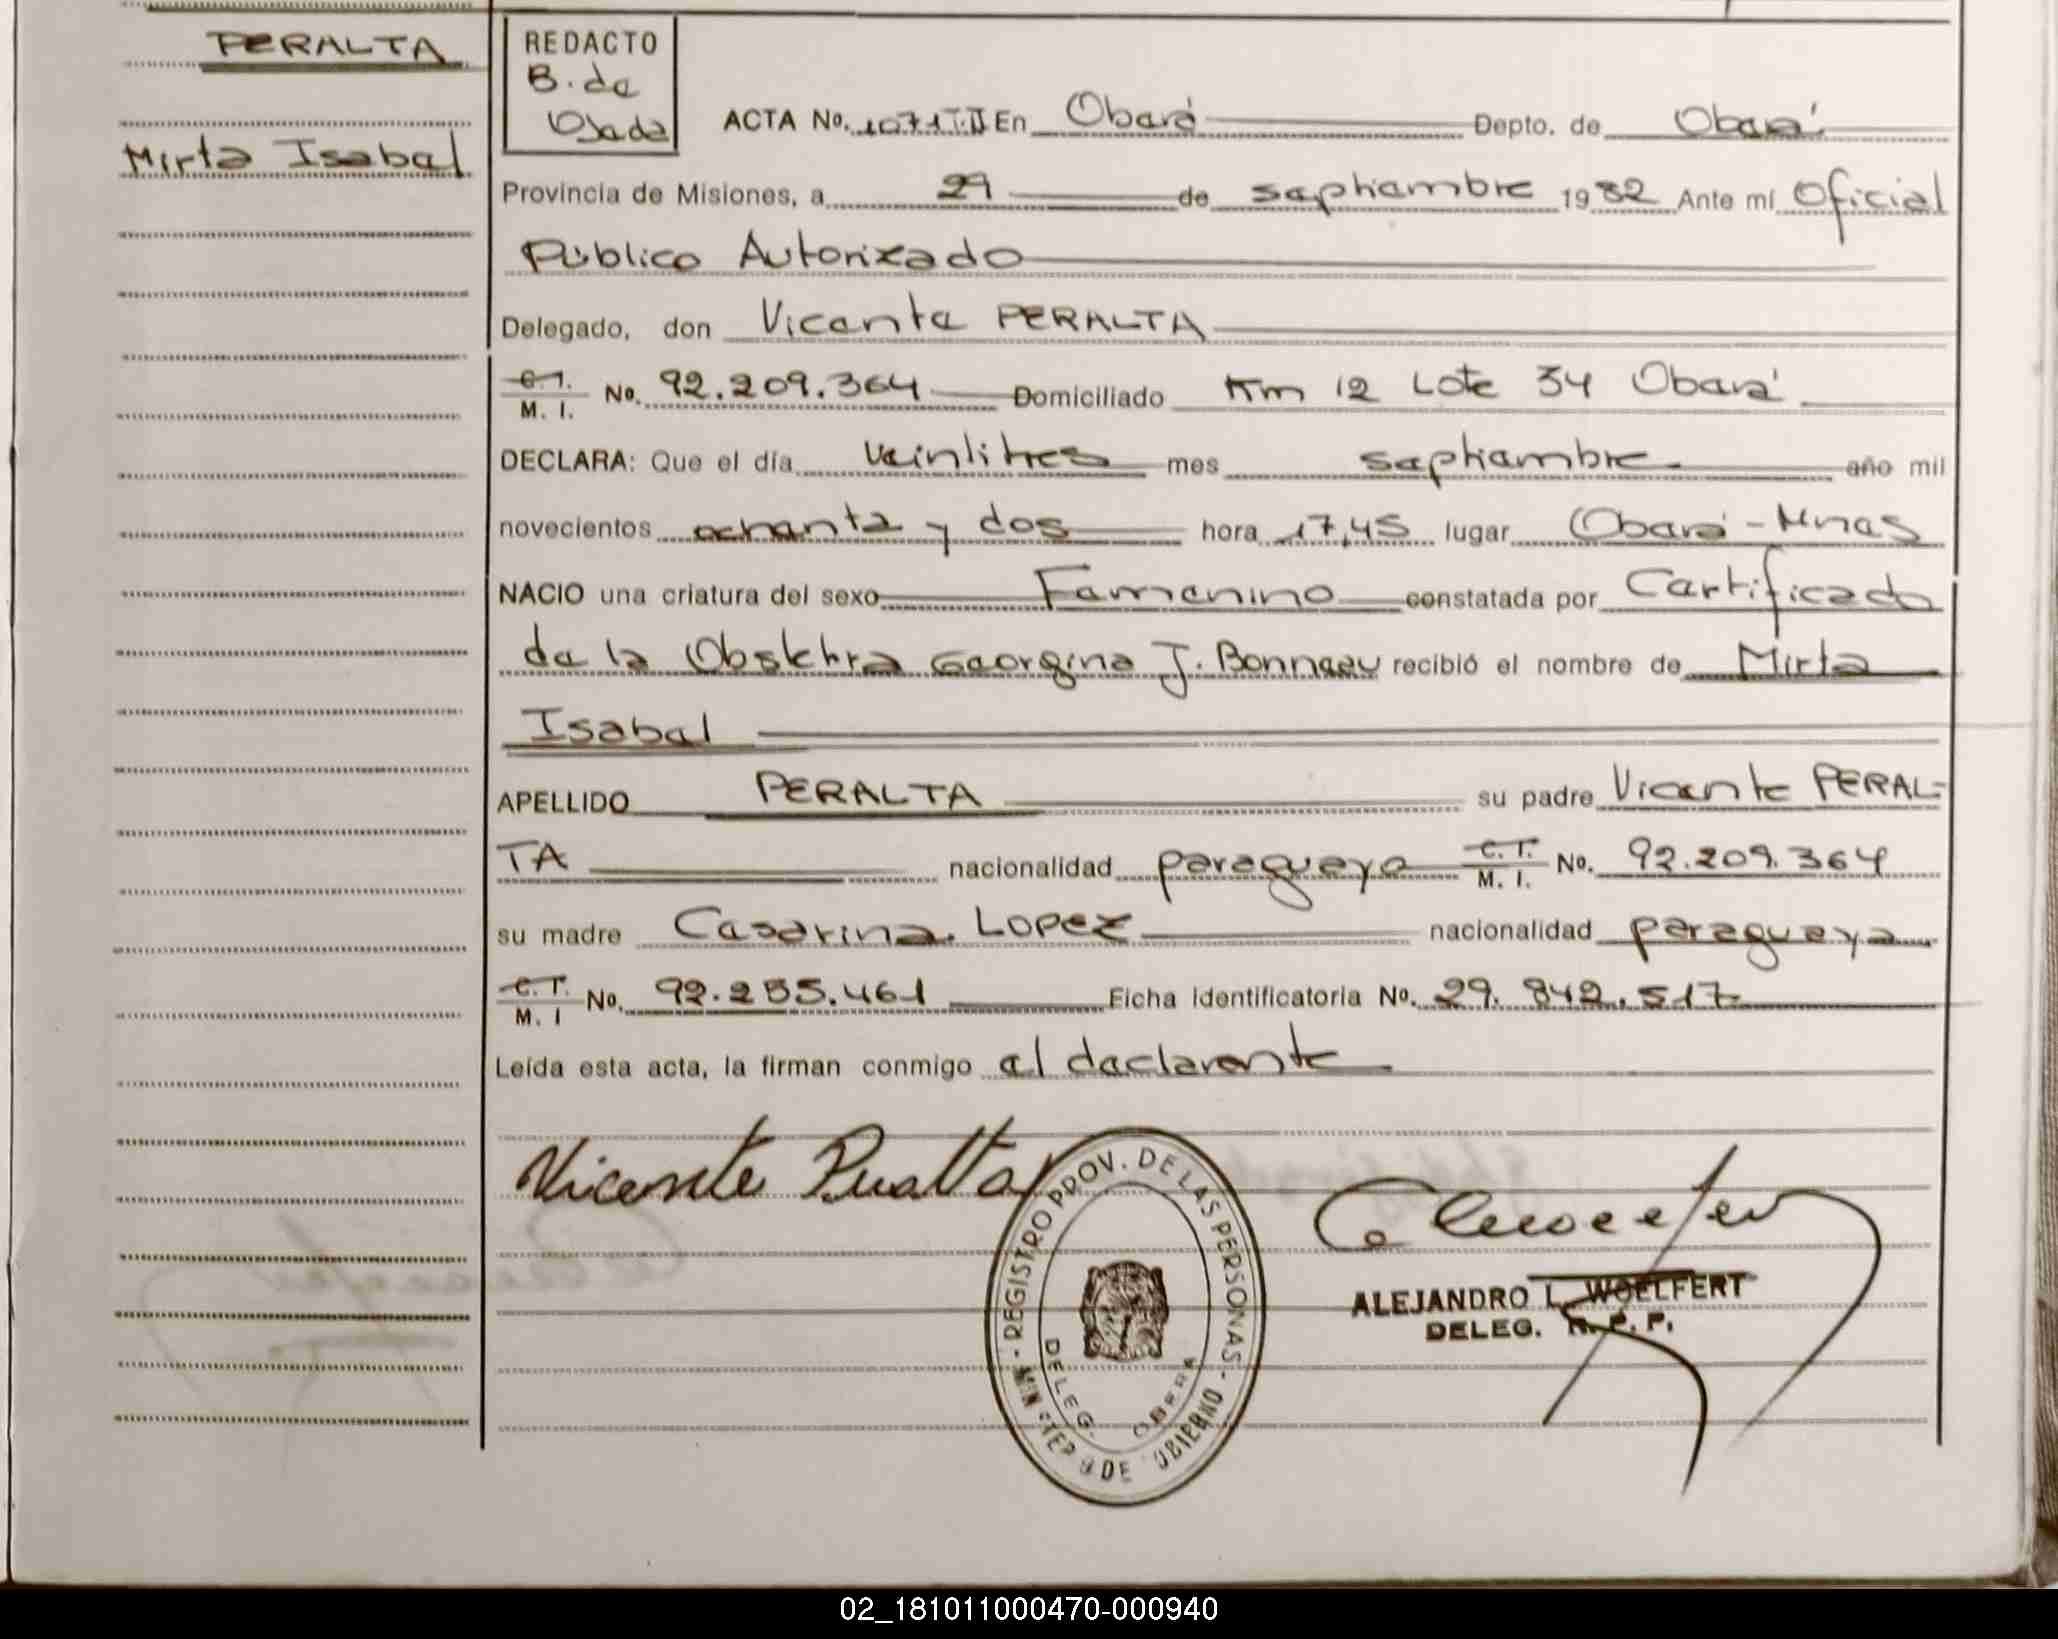 PERALTA
Mirta Isabel
REDACTO
B. de
Ojeda
ACTA No. 1071 T.II En Oberá Depto. de Oberá
Provincia de Misiones, a 29 de septiembre 1982 Ante mí Oficial
Público Autorizado
Delegado, don Vicente PERALTA
C. I. M. I. No. 92.209.364 Domiciliado Km 12 Lote 34 Oberá
DECLARA: Que el día veintitres mes septiembre año mil
novecientos ochenta y dos hora 17,45 lugar Oberá - Mnes
NACIO una criatura del sexo Femenino constatada por Certificado
de la Obstetra Georgina J. Bonneau recibió el nombre de Mirta
Isabel
APELLIDO PERALTA su padre Vicente PERAL-
TA nacionalidad paraguayo C. I. M. I. No. 92.209.364
su madre Cesarina Lopez nacionalidad paraguaya
C. I. M. I No. 92.255.461 Ficha Identificatoria No. 29.842.517
Leída esta acta, la firman conmigo el declarante
Vicente Peralta
REGISTRO PROV. DE LAS PERSONAS - MINISTERIO DE GOBIERNO
DELEG. OBERA
ALEJANDRO L. WOELFERT
DELEG. R. P. P.
02_181011000470-000940